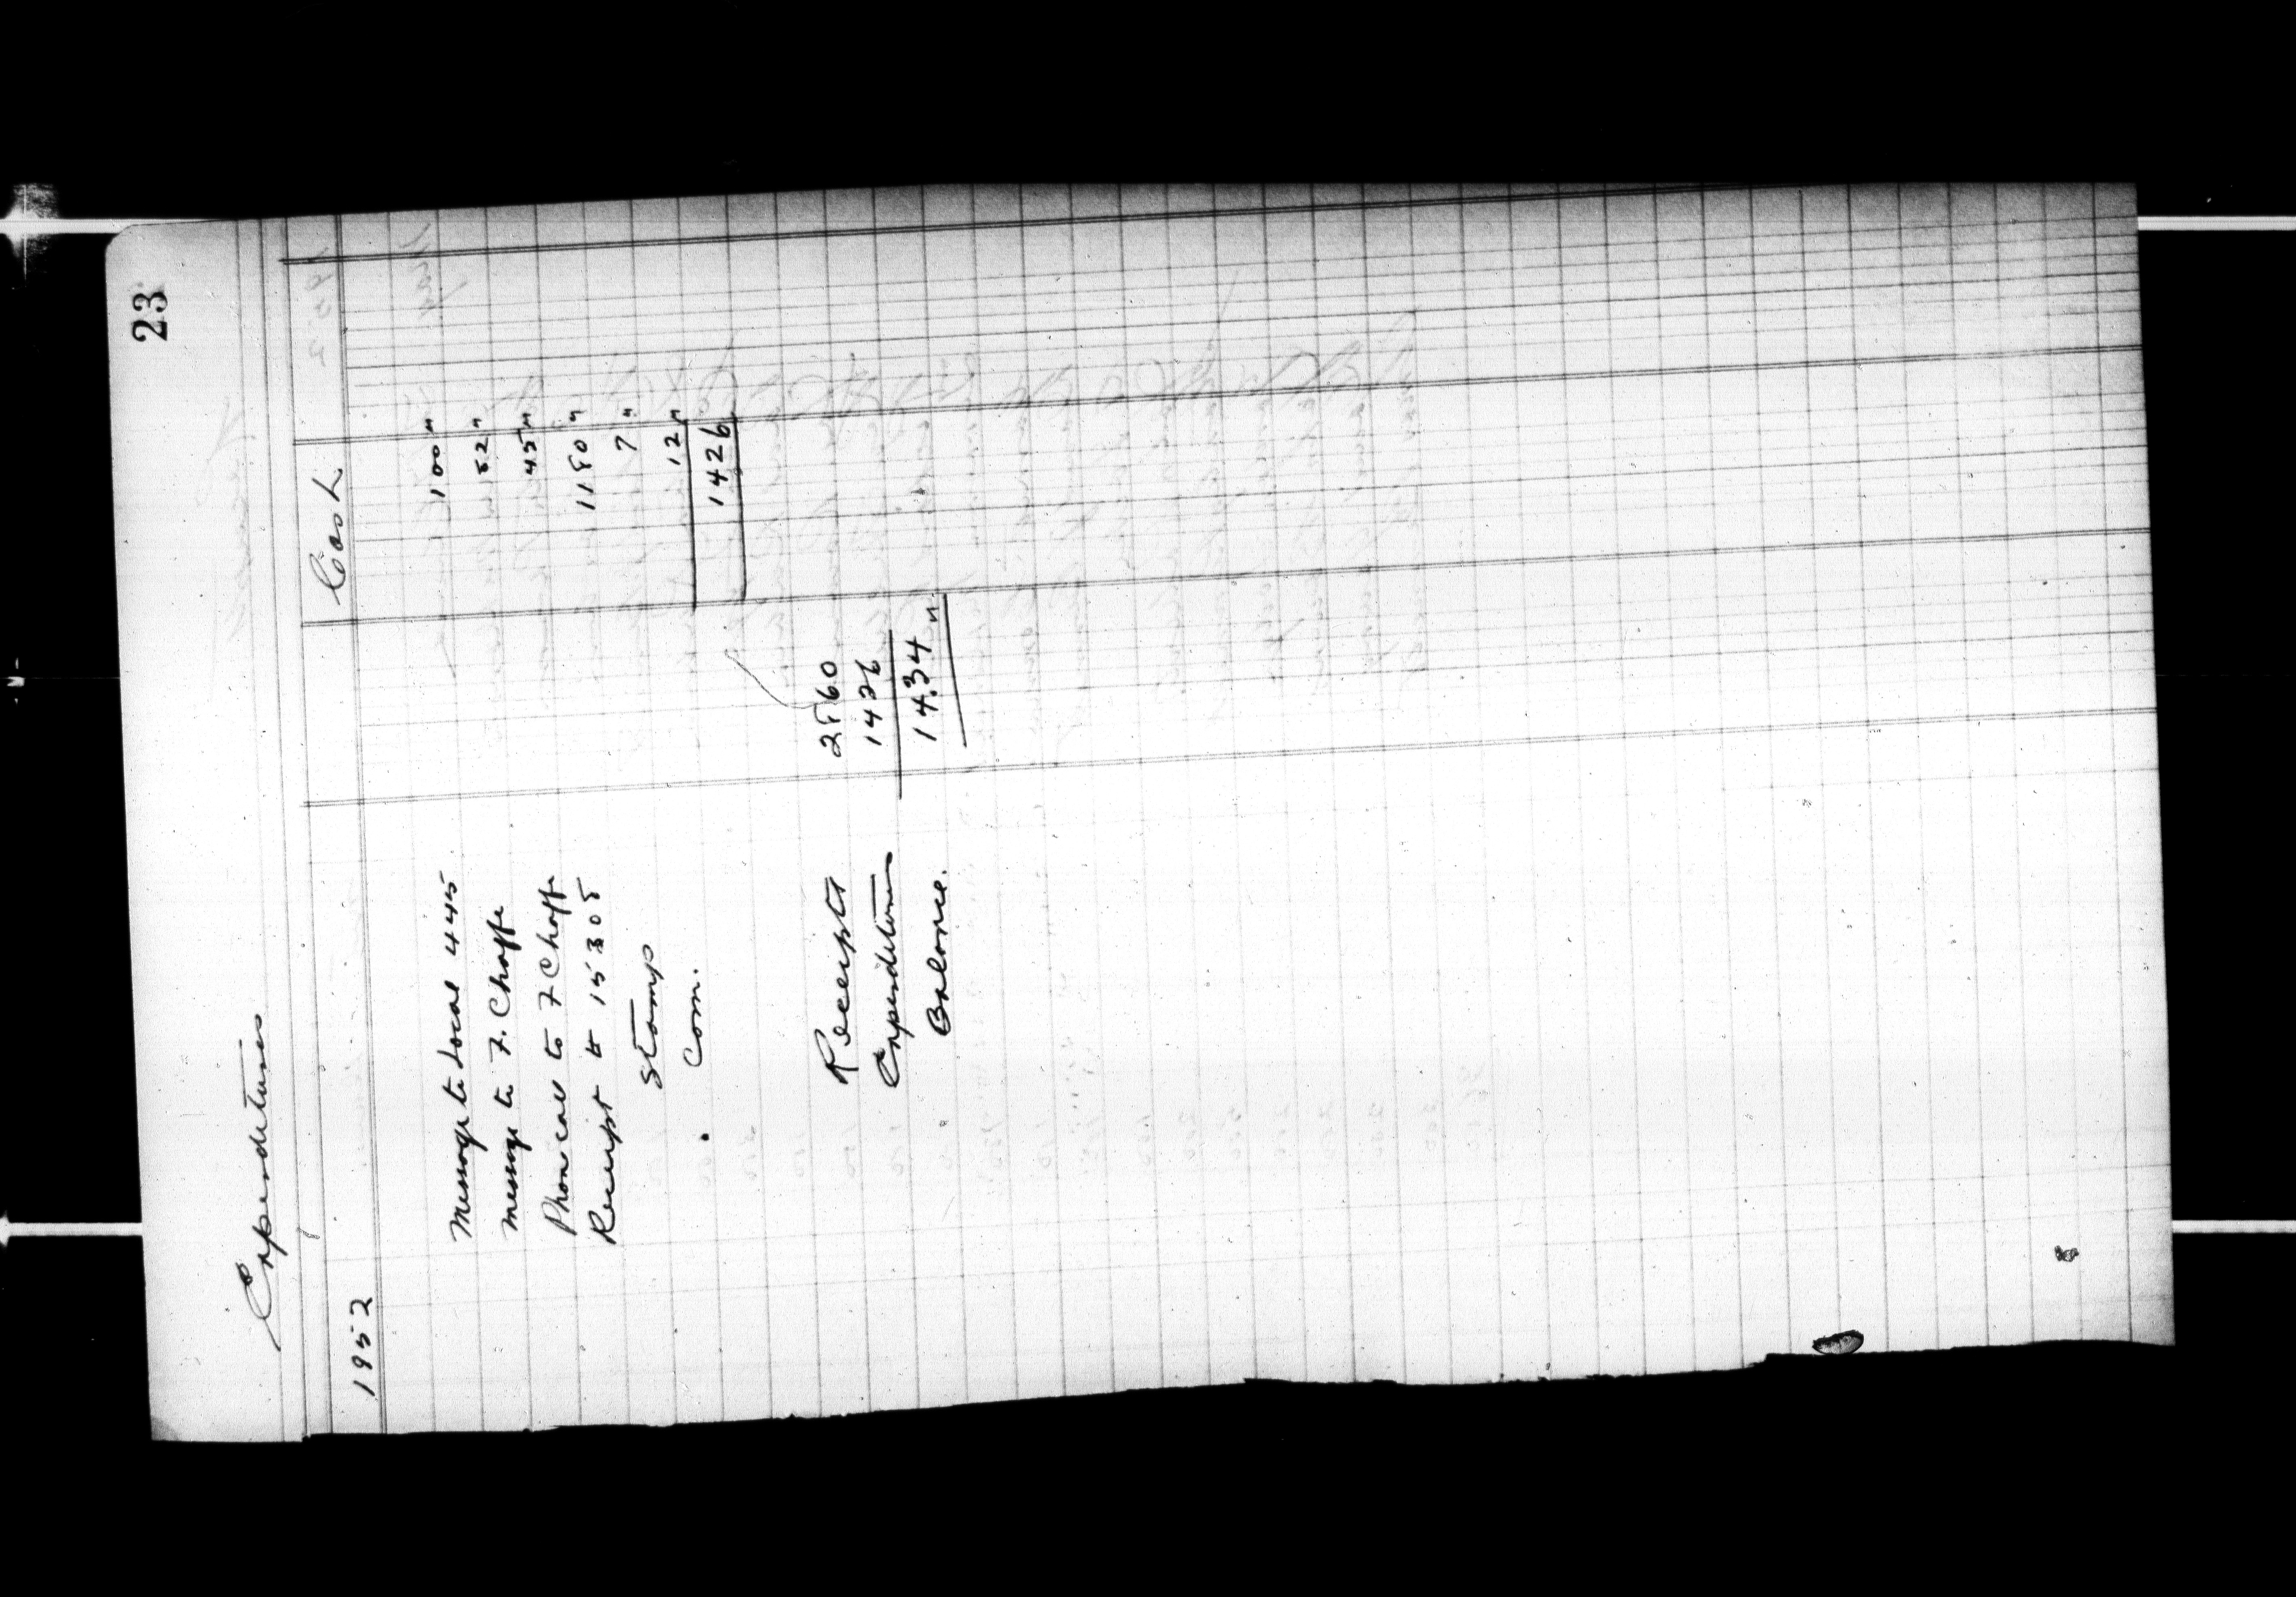 23
Expenditures
Cash
1952
Message to Local 445 100 "
message to F. Chaffe 82 "
Phone call to F Chaffe 45 "
Receipt # 15308 1180 "
Stamp 7 "
Com. 12 "
1426
Receipts 2860
Expenditures 1426
Balance. 14.34 "